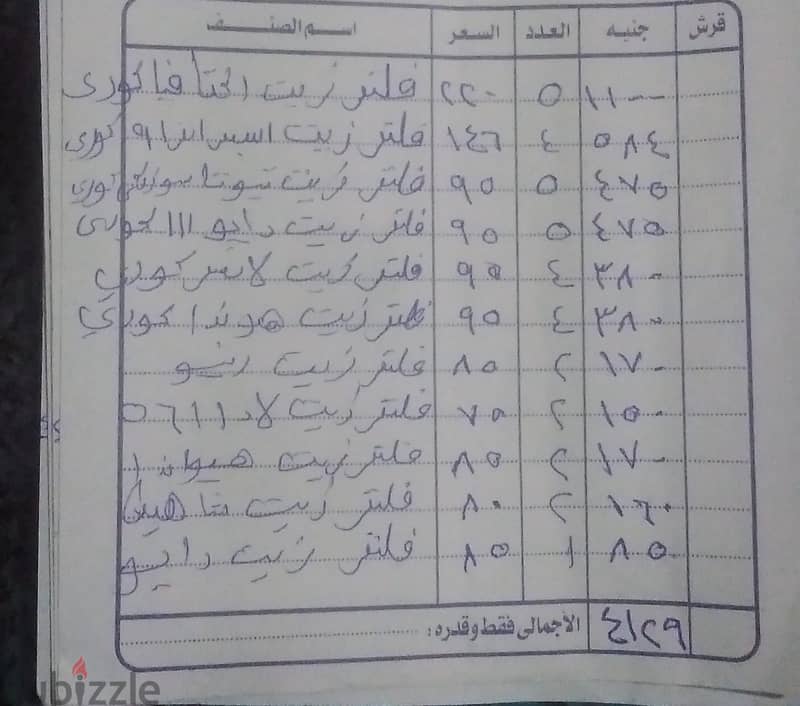 قرش جنيه العدد السعر اسم الصنف
١١٠٠ ٥ ٢٢٠ فلتر زيت كورى
٥٨٤ ٤ ١٤٦ فلتر زيت كورى
٤٧٥ ٥ ٩٥ فلتر زيت تيوتا كورى
٤٧٥ ٥ ٩٥ فلتر زيت دايو كورى
٣٨٠ ٤ ٩٥ فلتر زيت لانسر كوري
٣٨٠ ٤ ٩٥ فلتر زيت هوندا كوري
١٧٠ ٢ ٨٥ فلتر زيت رينو
١٥٠ ٢ ٧٥ فلتر زيت لادا
١٧٠ ٢ ٨٥ فلتر زيت
١٦٠ ٢ ٨٠ فلتر زيت شاهين
٨٥ ١ ٨٥ فلتر زيت دايو
٤١٢٩ الأجمالى فقط وقدره:
ubizzle